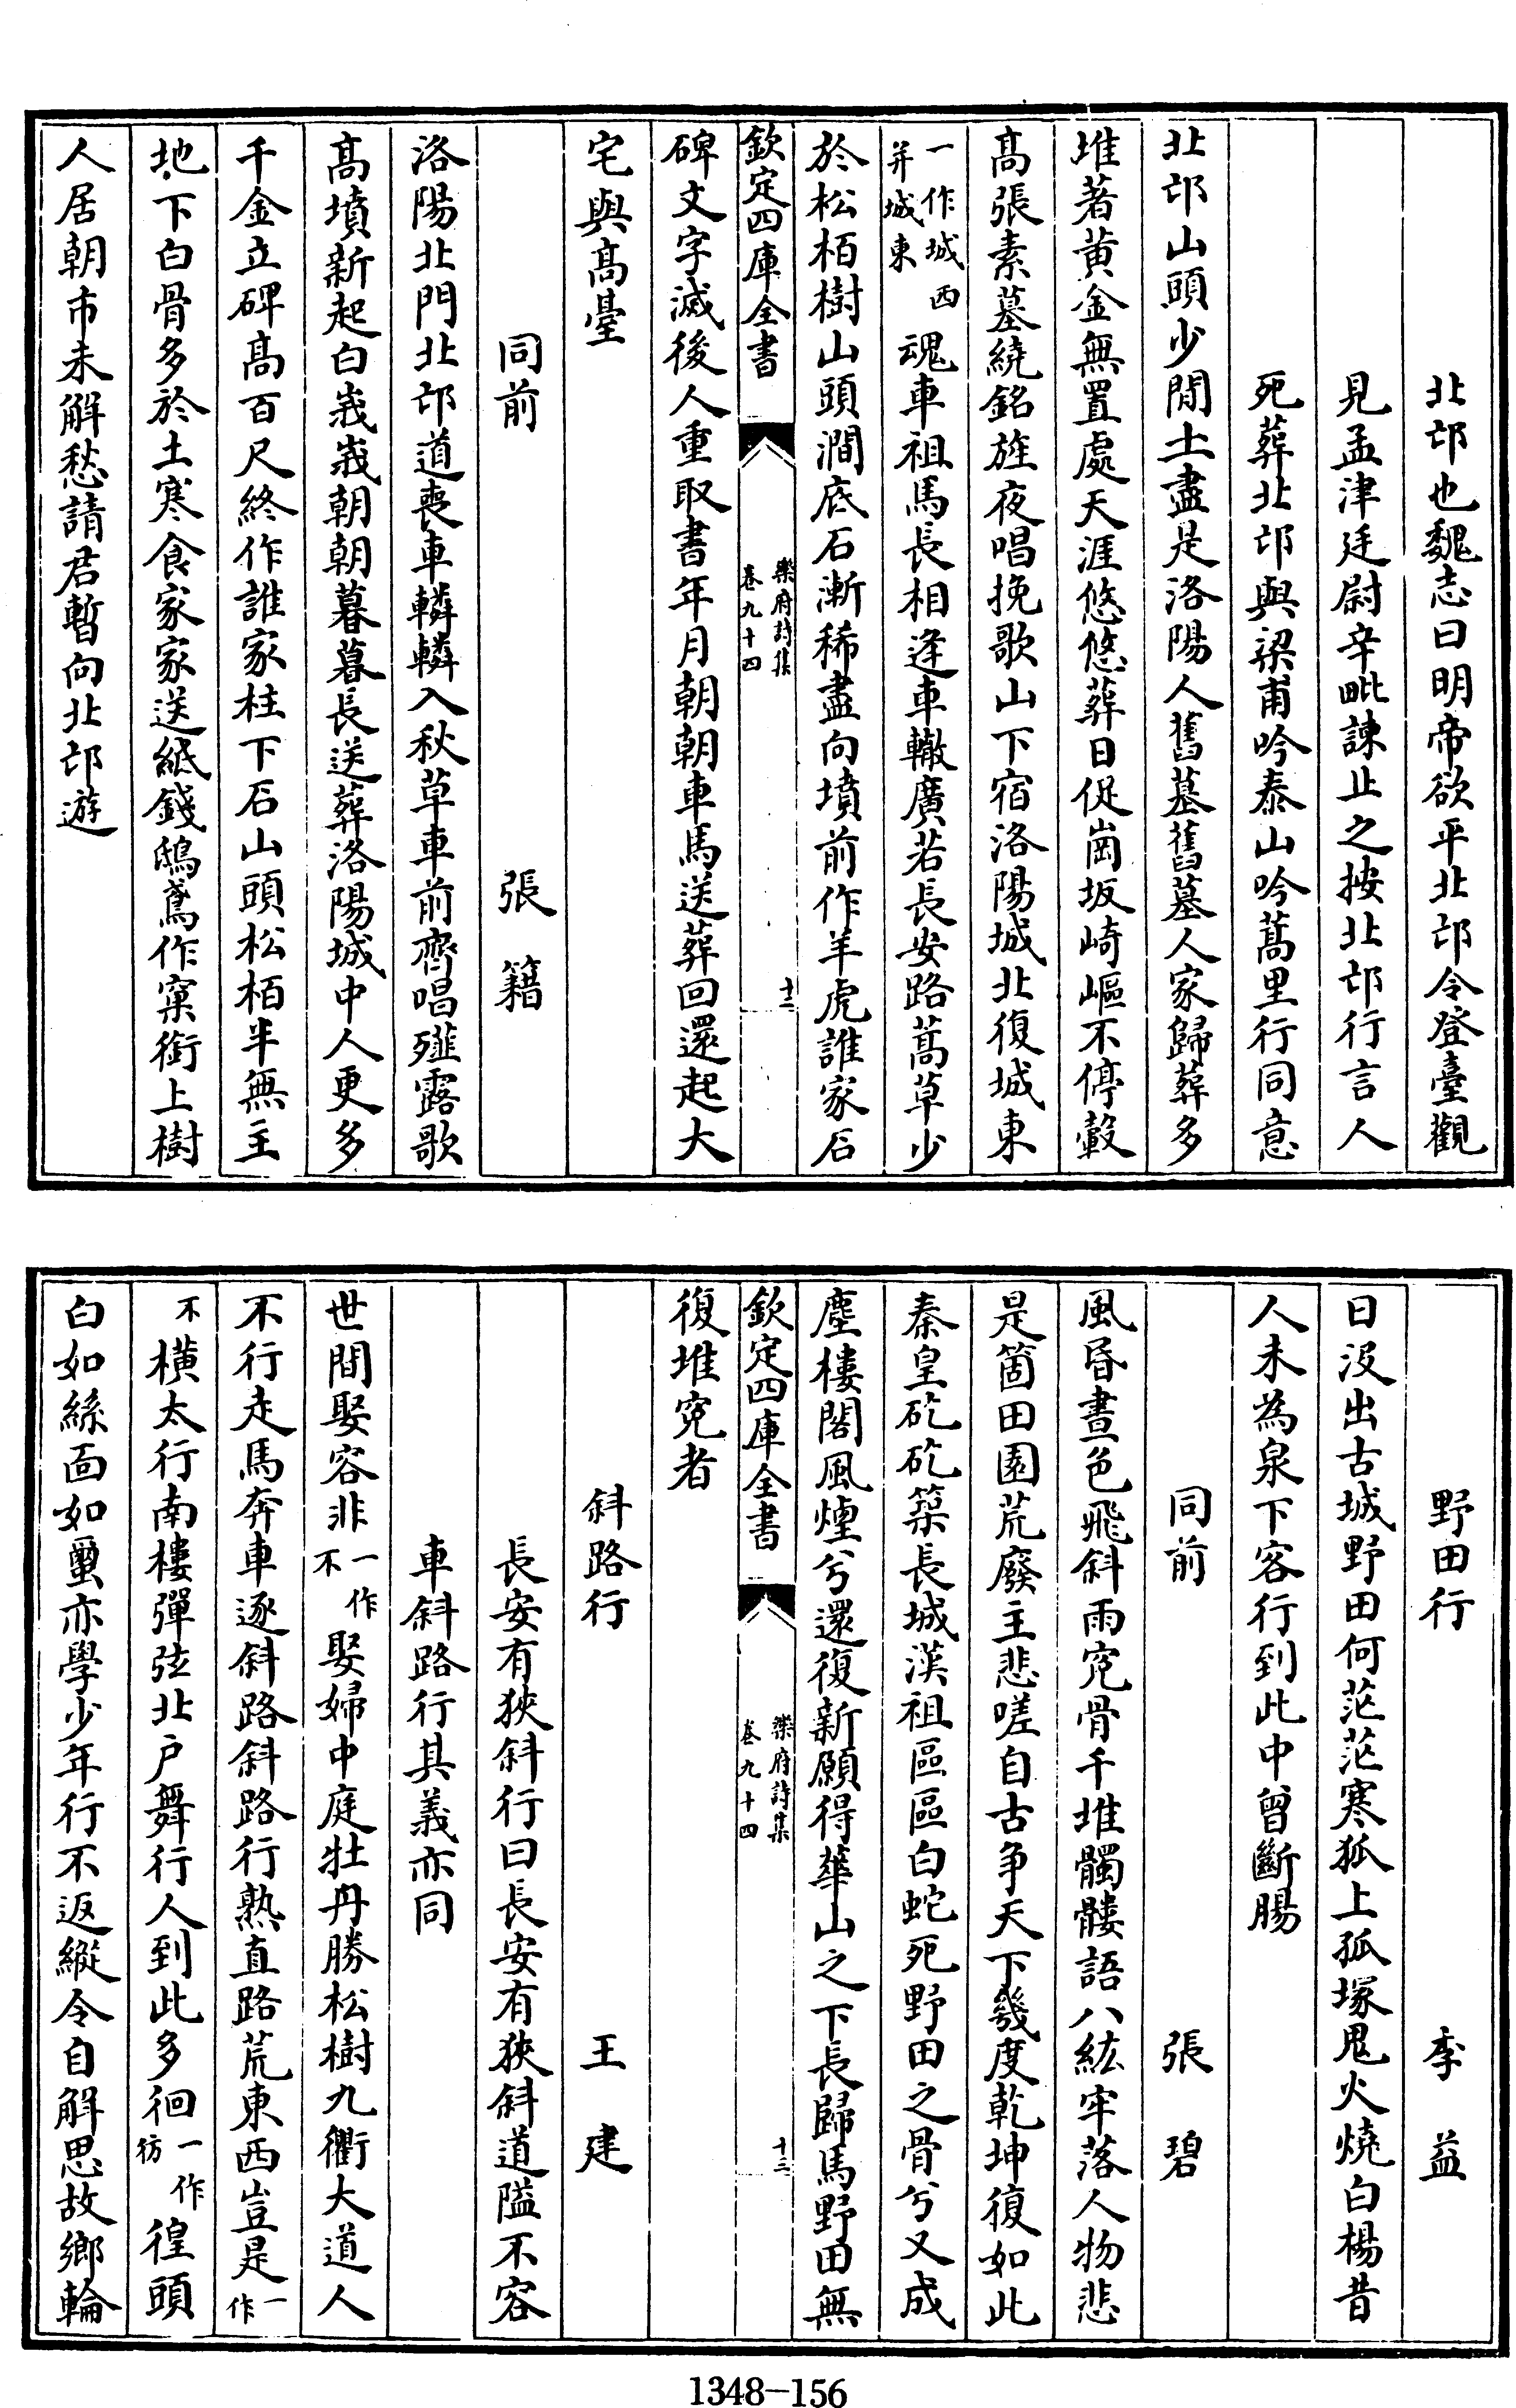 北邙也魏志曰明帝欲平北邙令登臺觀
見孟津廷尉辛毗諫止之按北邙行言人
死葬北邙與梁甫吟泰山吟蒿里行同意
北邙山頭少閒土盡是洛陽人舊墓舊墓人家歸葬多
堆著黃金無置處天涯悠悠葬日促崗坂崎嶇不停轂
高張素墓繞銘旌夜唱挽歌山下宿洛陽城北復城東
一作城西
并城東
魂車祖馬長相逢車轍廣若長安路蒿草少
於松栢樹山頭澗底石漸稀盡向墳前作羊虎誰家石
欽定四庫全書
樂府詩集
卷九十四
十二
碑文字滅後人重取書年月朝朝車馬送葬回還起大
宅與高臺
同前 張籍
洛陽北門北邙道喪車轔轔入秋草車前齊唱薤露歌
高墳新起白峩峩朝朝暮暮長送葬洛陽城中人更多
千金立碑高百尺終作誰家柱下石山頭松栢半無主
地下白骨多於土寒食家家送紙錢鴟鳶作窠銜上樹
人居朝市未解愁請君暫向北邙遊
野田行 李益
日沒出古城野田何茫茫寒狐上孤塚鬼火燒白楊昔
人未為泉下客行到此中曾斷腸
同前 張碧
風昏晝色飛斜雨寃骨千堆髑髏語八紘牢落人物悲
是箇田園荒廢主悲嗟自古爭天下幾度乾坤復如此
秦皇矻矻築長城漢祖區區白蛇死野田之骨兮又成
塵樓閣風煙兮還復新願得華山之下長歸馬野田無
欽定四庫全書
樂府詩集
卷九十四
十三
復堆寃者
斜路行 王建
長安有狹斜行曰長安有狹斜道隘不容
車斜路行其義亦同
世間娶容非一作不娶婦中庭牡丹勝松樹九衢大道人
不行走馬奔車逐斜路斜路行熟直路荒東西豈是一作
不橫太行南樓彈弦北户舞行人到此多徊一作彷徨頭
白如絲面如璽亦學少年行不返縱令自解思故鄉輪
1348-156